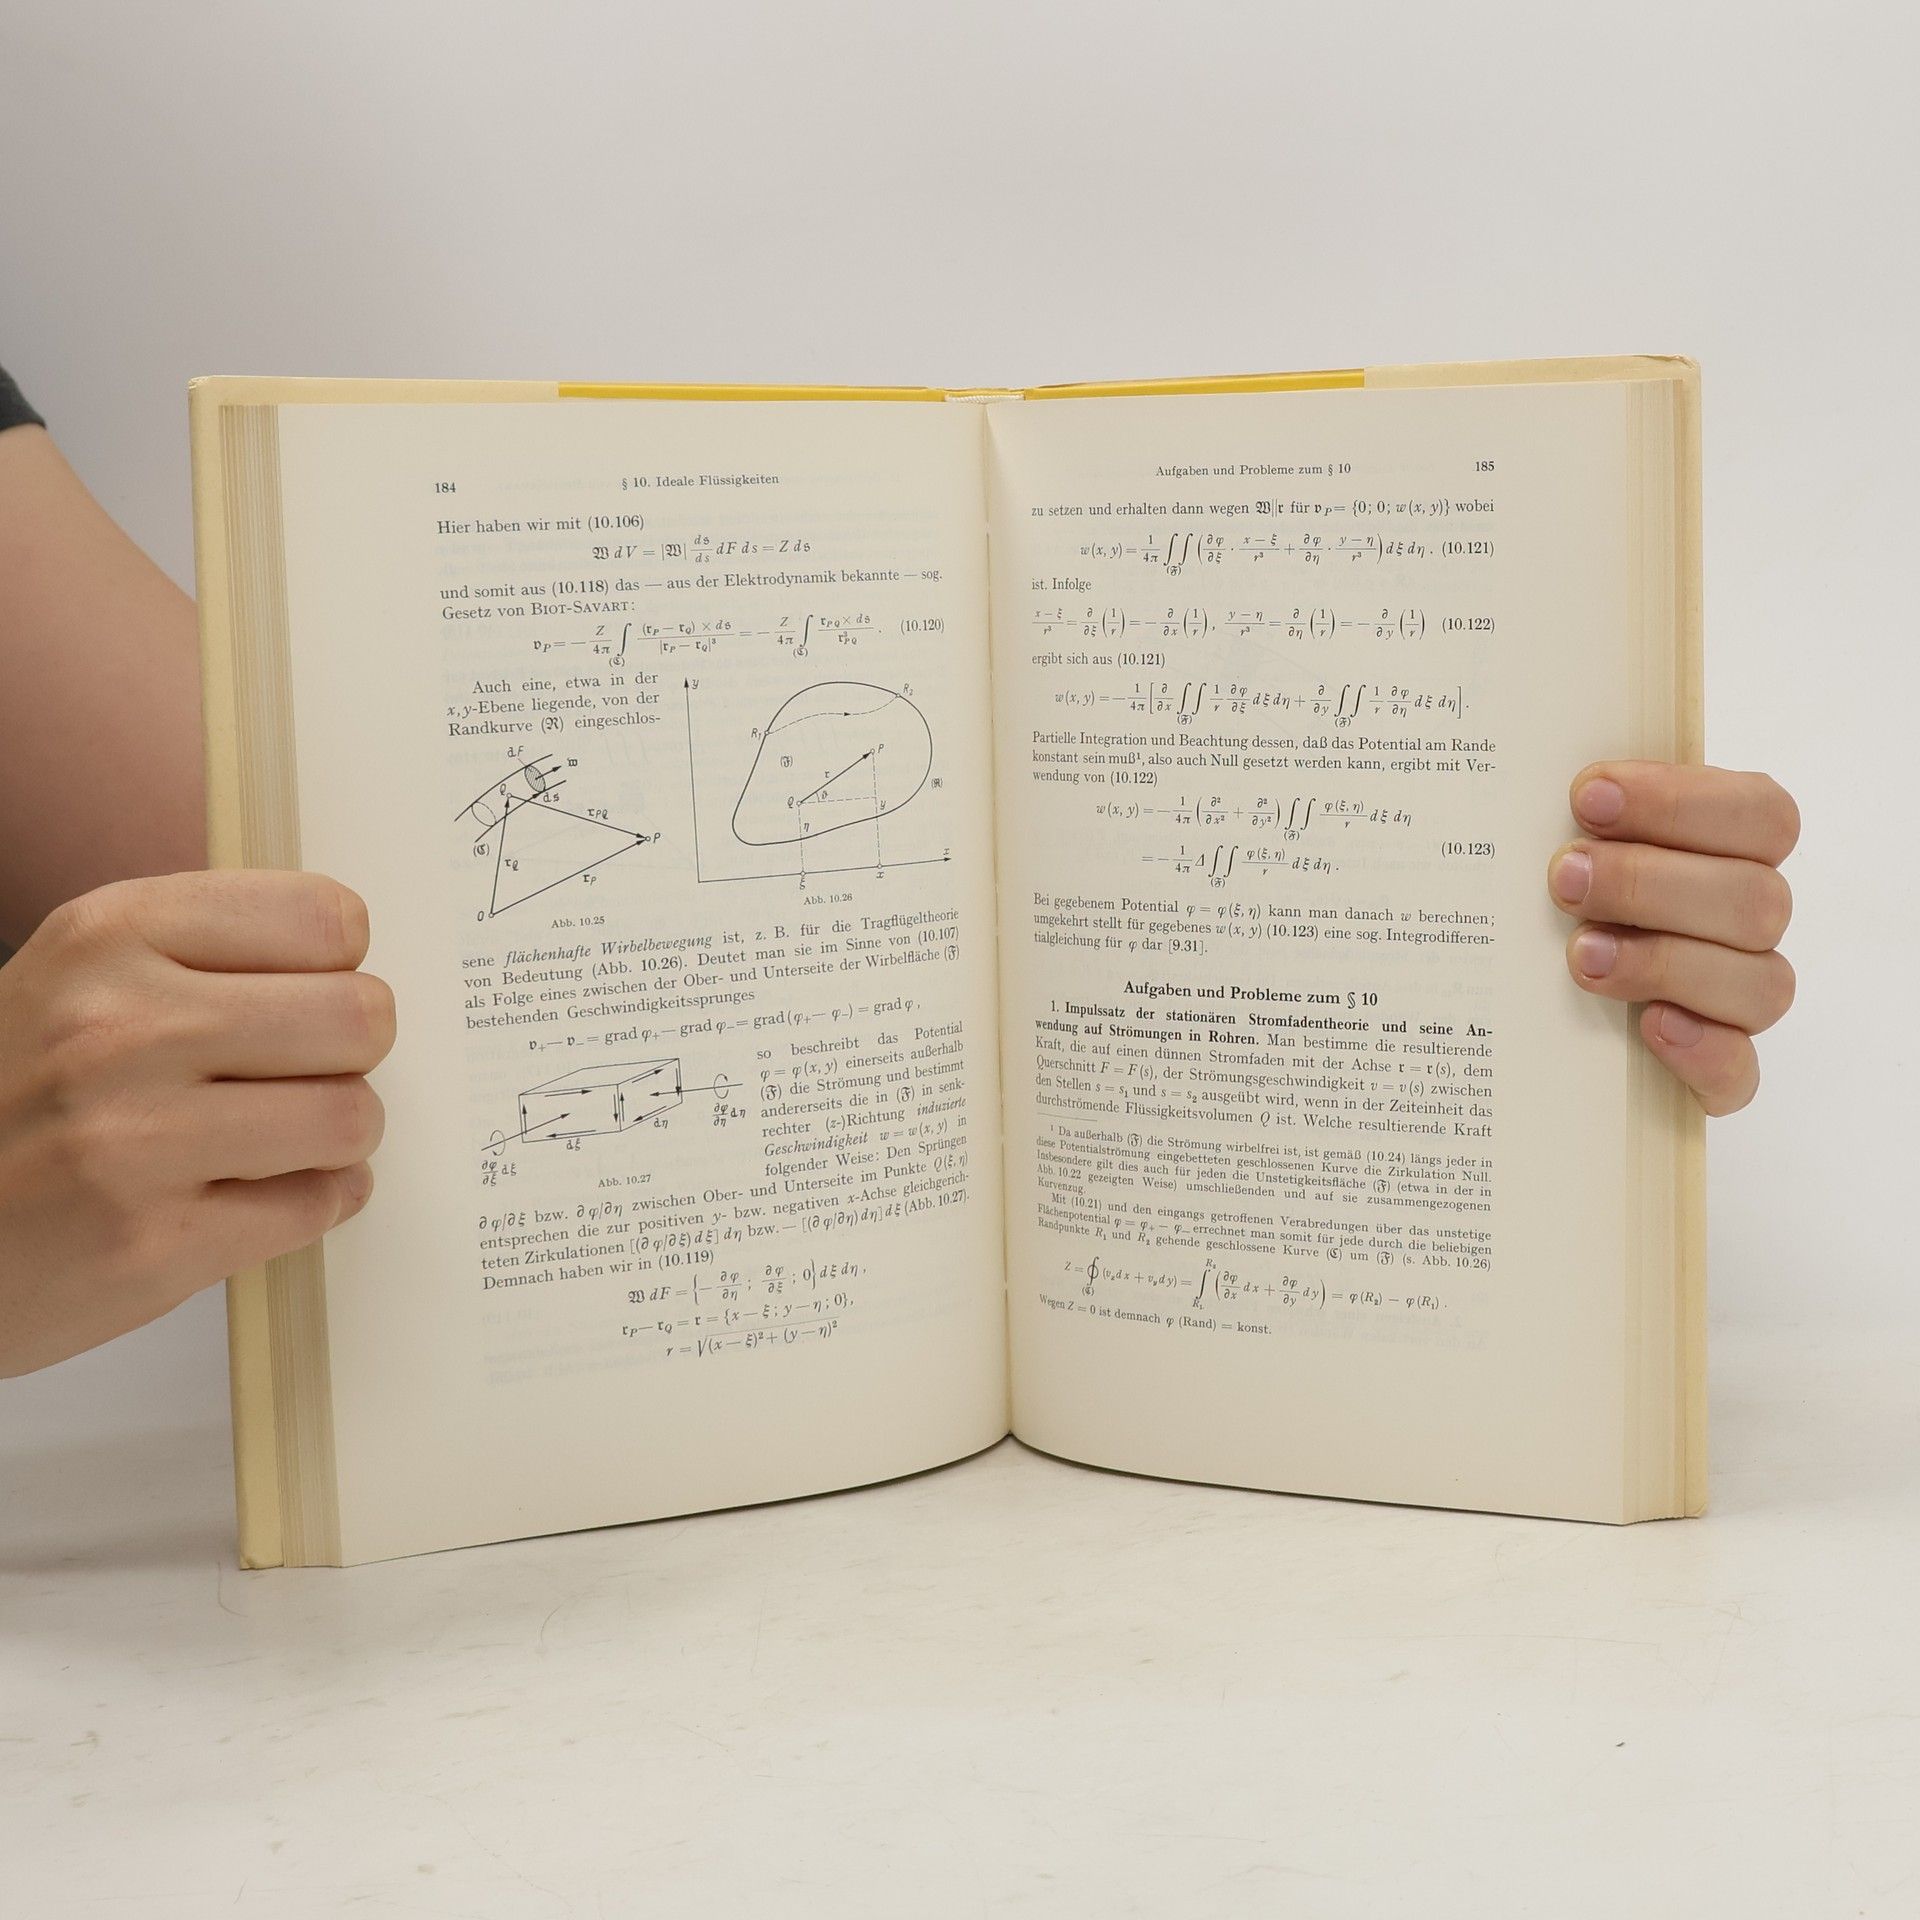 184
§ 10. Ideale Flüssigkeiten
Hier haben wir mit (10.106)
𝔚 dV = |𝔚| d𝔰/ds dF ds = Z d𝔰
und somit aus (10.118) das — aus der Elektrodynamik bekannte — sog.
Gesetz von BIOT-SAVART:
𝔳_P = − Z/4π ∫_(ℭ) (𝔯_P − 𝔯_Q) × d𝔰 / |𝔯_P − 𝔯_Q|³ = − Z/4π ∫_(ℭ) 𝔯_PQ × d𝔰 / 𝔯³_PQ . (10.120)
Auch eine, etwa in der
x,y-Ebene liegende, von der
Randkurve (ℜ) eingeschlos-
dF
𝔴
Q
d𝔰
𝔯_PQ
P
(ℭ)
𝔯_Q
𝔯_P
O
Abb. 10.25
y
R₂
R₁
(𝔉)
P
𝔯
Q
ϑ
y
η
(ℜ)
x
ξ
x
Abb. 10.26
sene flächenhafte Wirbelbewegung ist, z. B. für die Tragflügeltheorie
von Bedeutung (Abb. 10.26). Deutet man sie im Sinne von (10.107)
als Folge eines zwischen der Ober- und Unterseite der Wirbelfläche (𝔉)
bestehenden Geschwindigkeitssprunges
𝔳₊ — 𝔳₋ = grad φ₊ — grad φ₋ = grad (φ₊ — φ₋) = grad φ ,
∂φ/∂ξ dξ
dξ
dη
∂φ/∂η dη
Abb. 10.27
so beschreibt das Potential
φ = φ (x, y) einerseits außerhalb
(𝔉) die Strömung und bestimmt
andererseits die in (𝔉) in senk-
rechter (z-)Richtung induzierte
Geschwindigkeit w = w (x, y) in
folgender Weise: Den Sprüngen
∂φ/∂ξ bzw. ∂φ/∂η zwischen Ober- und Unterseite im Punkte Q (ξ, η)
entsprechen die zur positiven y- bzw. negativen x-Achse gleichgerich-
teten Zirkulationen [(∂φ/∂ξ) dξ] dη bzw. — [(∂φ/∂η) dη] dξ (Abb. 10.27).
Demnach haben wir in (10.119)
𝔚 dF = {− ∂φ/∂η ; ∂φ/∂ξ ; 0} dξ dη ,
𝔯_P — 𝔯_Q = 𝔯 = {x — ξ ; y — η ; 0},
r = √(x — ξ)² + (y — η)²
Aufgaben und Probleme zum § 10
185
zu setzen und erhalten dann wegen 𝔚||𝔯 für 𝔳_P = {0; 0; w (x, y)} wobei
w (x, y) = 1/4π ∫∫_(𝔉) (∂φ/∂ξ · x − ξ/r³ + ∂φ/∂η · y − η/r³) dξ dη . (10.121)
ist. Infolge
x − ξ/r³ = ∂/∂ξ (1/r) = − ∂/∂x (1/r) , y − η/r³ = ∂/∂η (1/r) = − ∂/∂y (1/r) (10.122)
ergibt sich aus (10.121)
w (x, y) = − 1/4π [∂/∂x ∫∫_(𝔉) 1/r ∂φ/∂ξ dξ dη + ∂/∂y ∫∫_(𝔉) 1/r ∂φ/∂η dξ dη] .
Partielle Integration und Beachtung dessen, daß das Potential am Rande
konstant sein muß¹, also auch Null gesetzt werden kann, ergibt mit Ver-
wendung von (10.122)
w (x, y) = − 1/4π (∂²/∂x² + ∂²/∂y²) ∫∫_(𝔉) φ (ξ, η)/r dξ dη
= − 1/4π Δ ∫∫_(𝔉) φ (ξ, η)/r dξ dη . (10.123)
Bei gegebenem Potential φ = φ (ξ, η) kann man danach w berechnen;
umgekehrt stellt für gegebenes w (x, y) (10.123) eine sog. Integrodifferen-
tialgleichung für φ dar [9.31].
Aufgaben und Probleme zum § 10
1. Impulssatz der stationären Stromfadentheorie und seine An-
wendung auf Strömungen in Rohren. Man bestimme die resultierende
Kraft, die auf einen dünnen Stromfaden mit der Achse 𝔯 = 𝔯 (s), dem
Querschnitt F = F (s), der Strömungsgeschwindigkeit v = v (s) zwischen
den Stellen s = s₁ und s = s₂ ausgeübt wird, wenn in der Zeiteinheit das
durchströmende Flüssigkeitsvolumen Q ist. Welche resultierende Kraft
¹ Da außerhalb (𝔉) die Strömung wirbelfrei ist, ist gemäß (10.24) längs jeder in
diese Potentialströmung eingebetteten geschlossenen Kurve die Zirkulation Null.
Insbesondere gilt dies auch für jeden die Unstetigkeitsfläche (𝔉) (etwa in der in
Abb. 10.22 gezeigten Weise) umschließenden und auf sie zusammengezogenen
Kurvenzug.
Mit (10.21) und den eingangs getroffenen Verabredungen über das unstetige
Flächenpotential φ = φ₊ — φ₋ errechnet man somit für jede durch die beliebigen
Randpunkte R₁ und R₂ gehende geschlossene Kurve (ℭ) um (𝔉) (s. Abb. 10.26)
Z = ∮_(ℭ) (vₓ dx + v_y dy) = ∫_R₁^R₂ (∂φ/∂x dx + ∂φ/∂y dy) = φ (R₂) − φ (R₁) .
Wegen Z = 0 ist demnach φ (Rand) = konst.